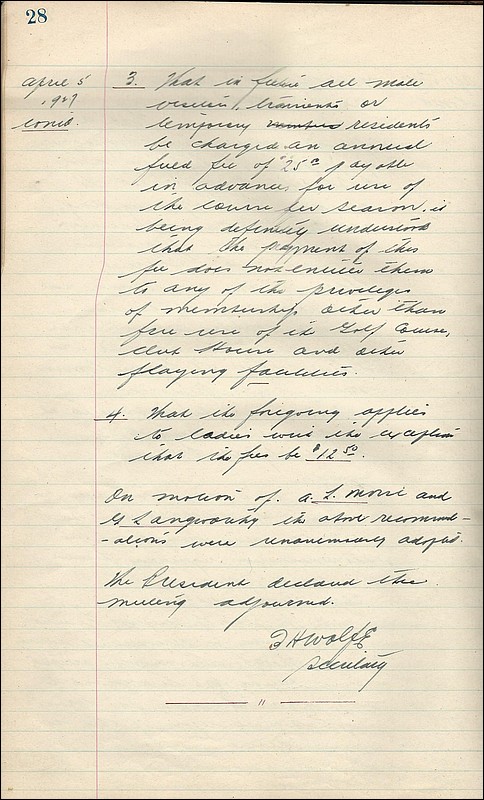 28
April 5
1927
Cont'd.
3. That in future all male
visitors, transients or
temporary residents
be charged an annual
fixed fee of $25.00 payable
in advance for use of
the course per season, it
being definitely understood
that the payment of this
fee does not entitle them
to any of the privileges
of membership other than
free use of the Golf Course,
Club House and other
playing facilities.
4. That the foregoing applies
to ladies with the exception
that the fees be $12.50.
On motion of A. L. Morse and
G. Langworthy the above recommend-
-ations were unanimously adopted.
The President declared the
meeting adjourned.
F H Wolfe
Secretary
"